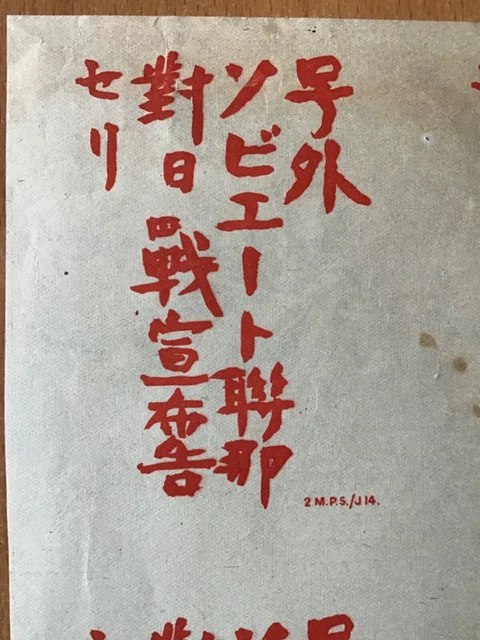 号外
ソビエート聯那
對日戰宣布告
セリ
2 M.P.S./J14.